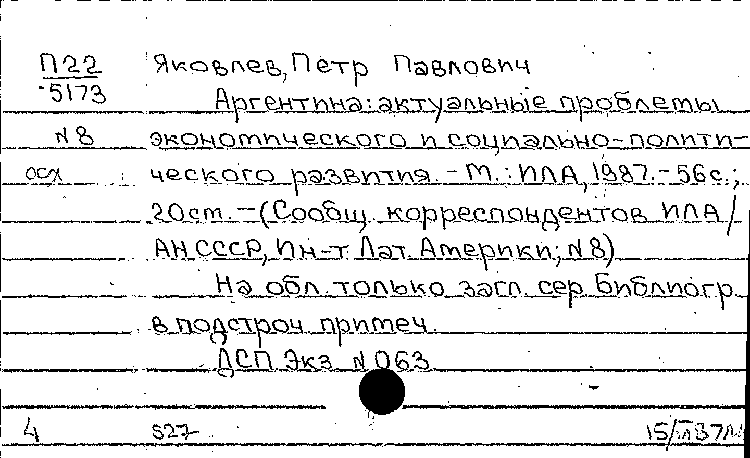 П22 Яковлев, Пётр Павлович
5173 Аргентина: актуальные проблемы
N8 экономического и социально-полити-
осх ческого развития. - М.: ИЛА, 1987. - 56с.;
20cm. - (Сообщ. корреспондентов ИЛА /
АН СССР, Ин-т Лат. Америки; N8)
На обл. только загл. сер. Библиогр.
в подстроч. примеч.
ДСП Экз. N 063
4 S27